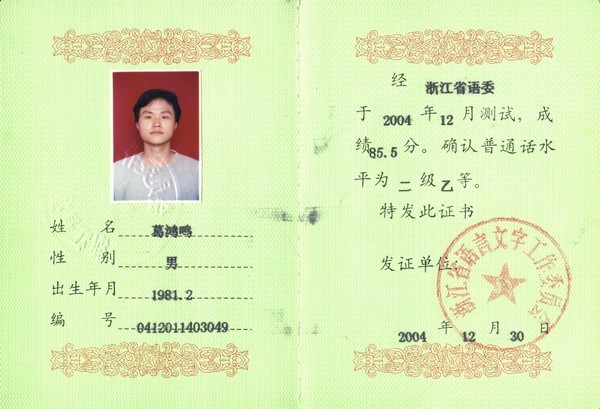 姓 名 葛鸿鸣
性 别 男
出生年月 1981.2
编 号 0412011403049
经 浙江省语委
于 2004 年 12 月测试，成
绩 85.5 分。确认普通话水
平为 二 级 乙 等。
特发此证书
发证单位：
浙江省语言文字工作委员会
2004 年 12 月 30 日